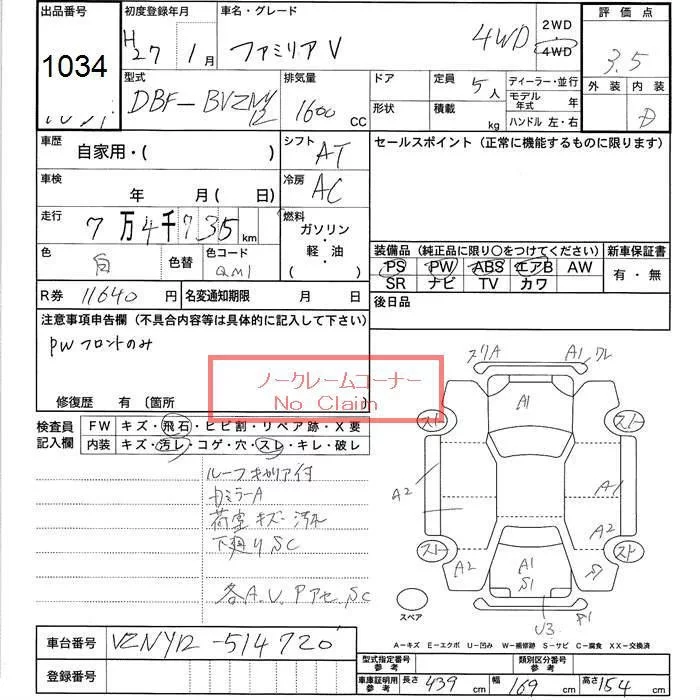 出品番号 初度登録年月 車名・グレード 2WD 評価点
1034 H27年 1月 ファミリアV 4WD 4WD 3.5
外装 内装
D
型式 排気量 ドア 定員 ディーラー・並行
DBF-BVZNY12 1600 CC 5人 モデル年式 年
形状 積載 kg ハンドル 左・右
車歴 シフト セールスポイント(正常に機能するものに限ります)
自家用・( ) AT
車検 冷房
年 月(日) AC
走行 燃料
7万4千735km ガソリン・軽・油
色 色替 色コード ( )
白 QM1
装備品(純正品に限り○をつけてください) 新車保証書
PS PW ABS エアB AW 有・無
SR ナビ TV カワ
R券 11640円 名変通知期限 月 日 後日品
注意事項申告欄(不具合内容等は具体的に記入して下さい)
PWフロントのみ
ノークレームコーナー
No Claim
修復歴 有〔箇所
検査員記入欄 FW キズ・飛石・ヒビ割・リペア跡・X要
内装 キズ・汚レ・コゲ・穴・スレ・キレ・破レ
ルーフキャリア付
カミラーA
荷室キズ・汚れ
下廻りSC
各A.U.PアセSC
スリA A1 ワレ
A1
スト スト
A2 A1
A2
スト スト
A2 A1 S1 S1
スペア U3 P1
A-キズ E-エクボ U-凹み W-補修跡 S-サビ C-腐食 XX-交換済
車台番号 VZNY12-514720
登録番号
型式指定番号参考 類別区分番号参考
車庫証明用参考 長さ 439cm 幅 169cm 高さ 154cm